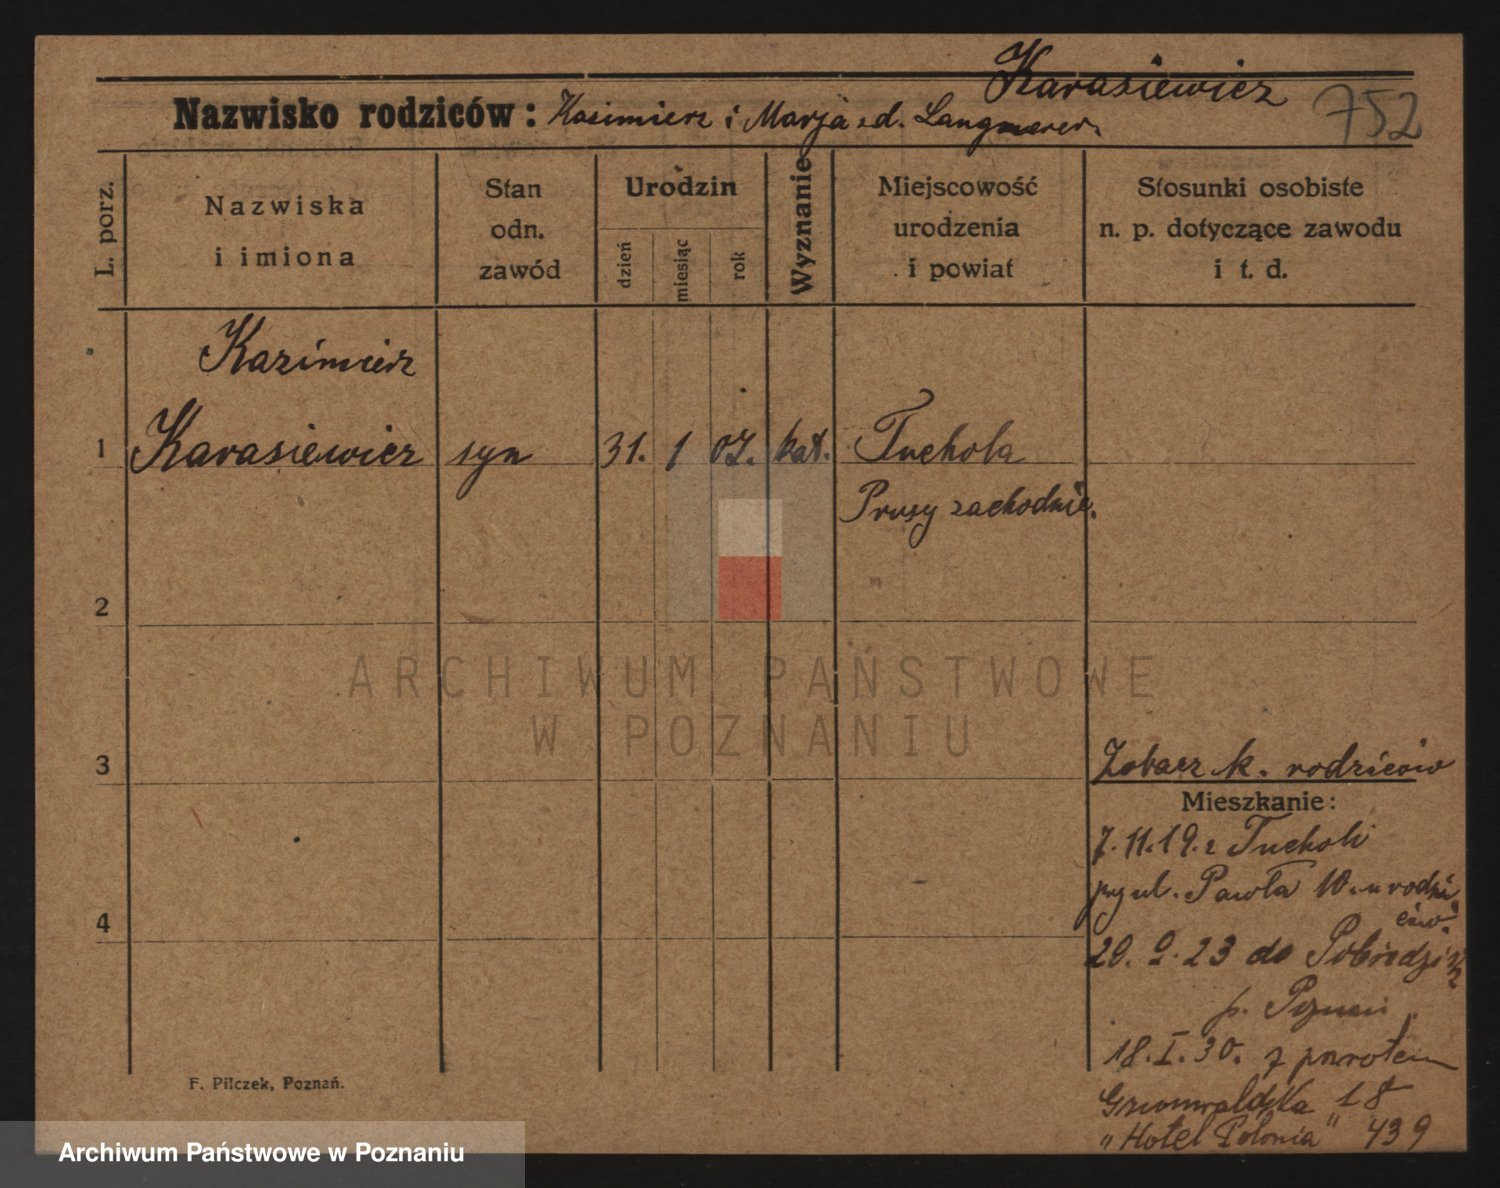 Karasiewicz
Nazwisko rodziców: Kasimierz i Marja z d. 752
L. porz.
Nazwiska
i imiona
Stan
odn.
zawód
Urodzin
dzień
miesiąc
rok
Wyznanie
Miejscowość
urodzenia
i powiat
Stosunki osobiste
n. p. dotyczące zawodu
i t. d.
Kazimierz
1 Karasiewicz syn 31. 1 07. kat. Tuchola
Prusy zachodnie.
2
ARCHIWUM PAŃSTWOWE
W POZNANIU
3
Zobacz k. rodziców
Mieszkanie:
7.11.19. z Tucholi
przy ul. Pawła 10. u rodzi
ców.
4
20. 9. 23 do Pobiedzisk
p.
18. I. 30. z powrotem
Grunwaldzka 18
"Hotel Polonia" 439
F. Pilczek, Poznań.
Archiwum Państwowe w Poznaniu